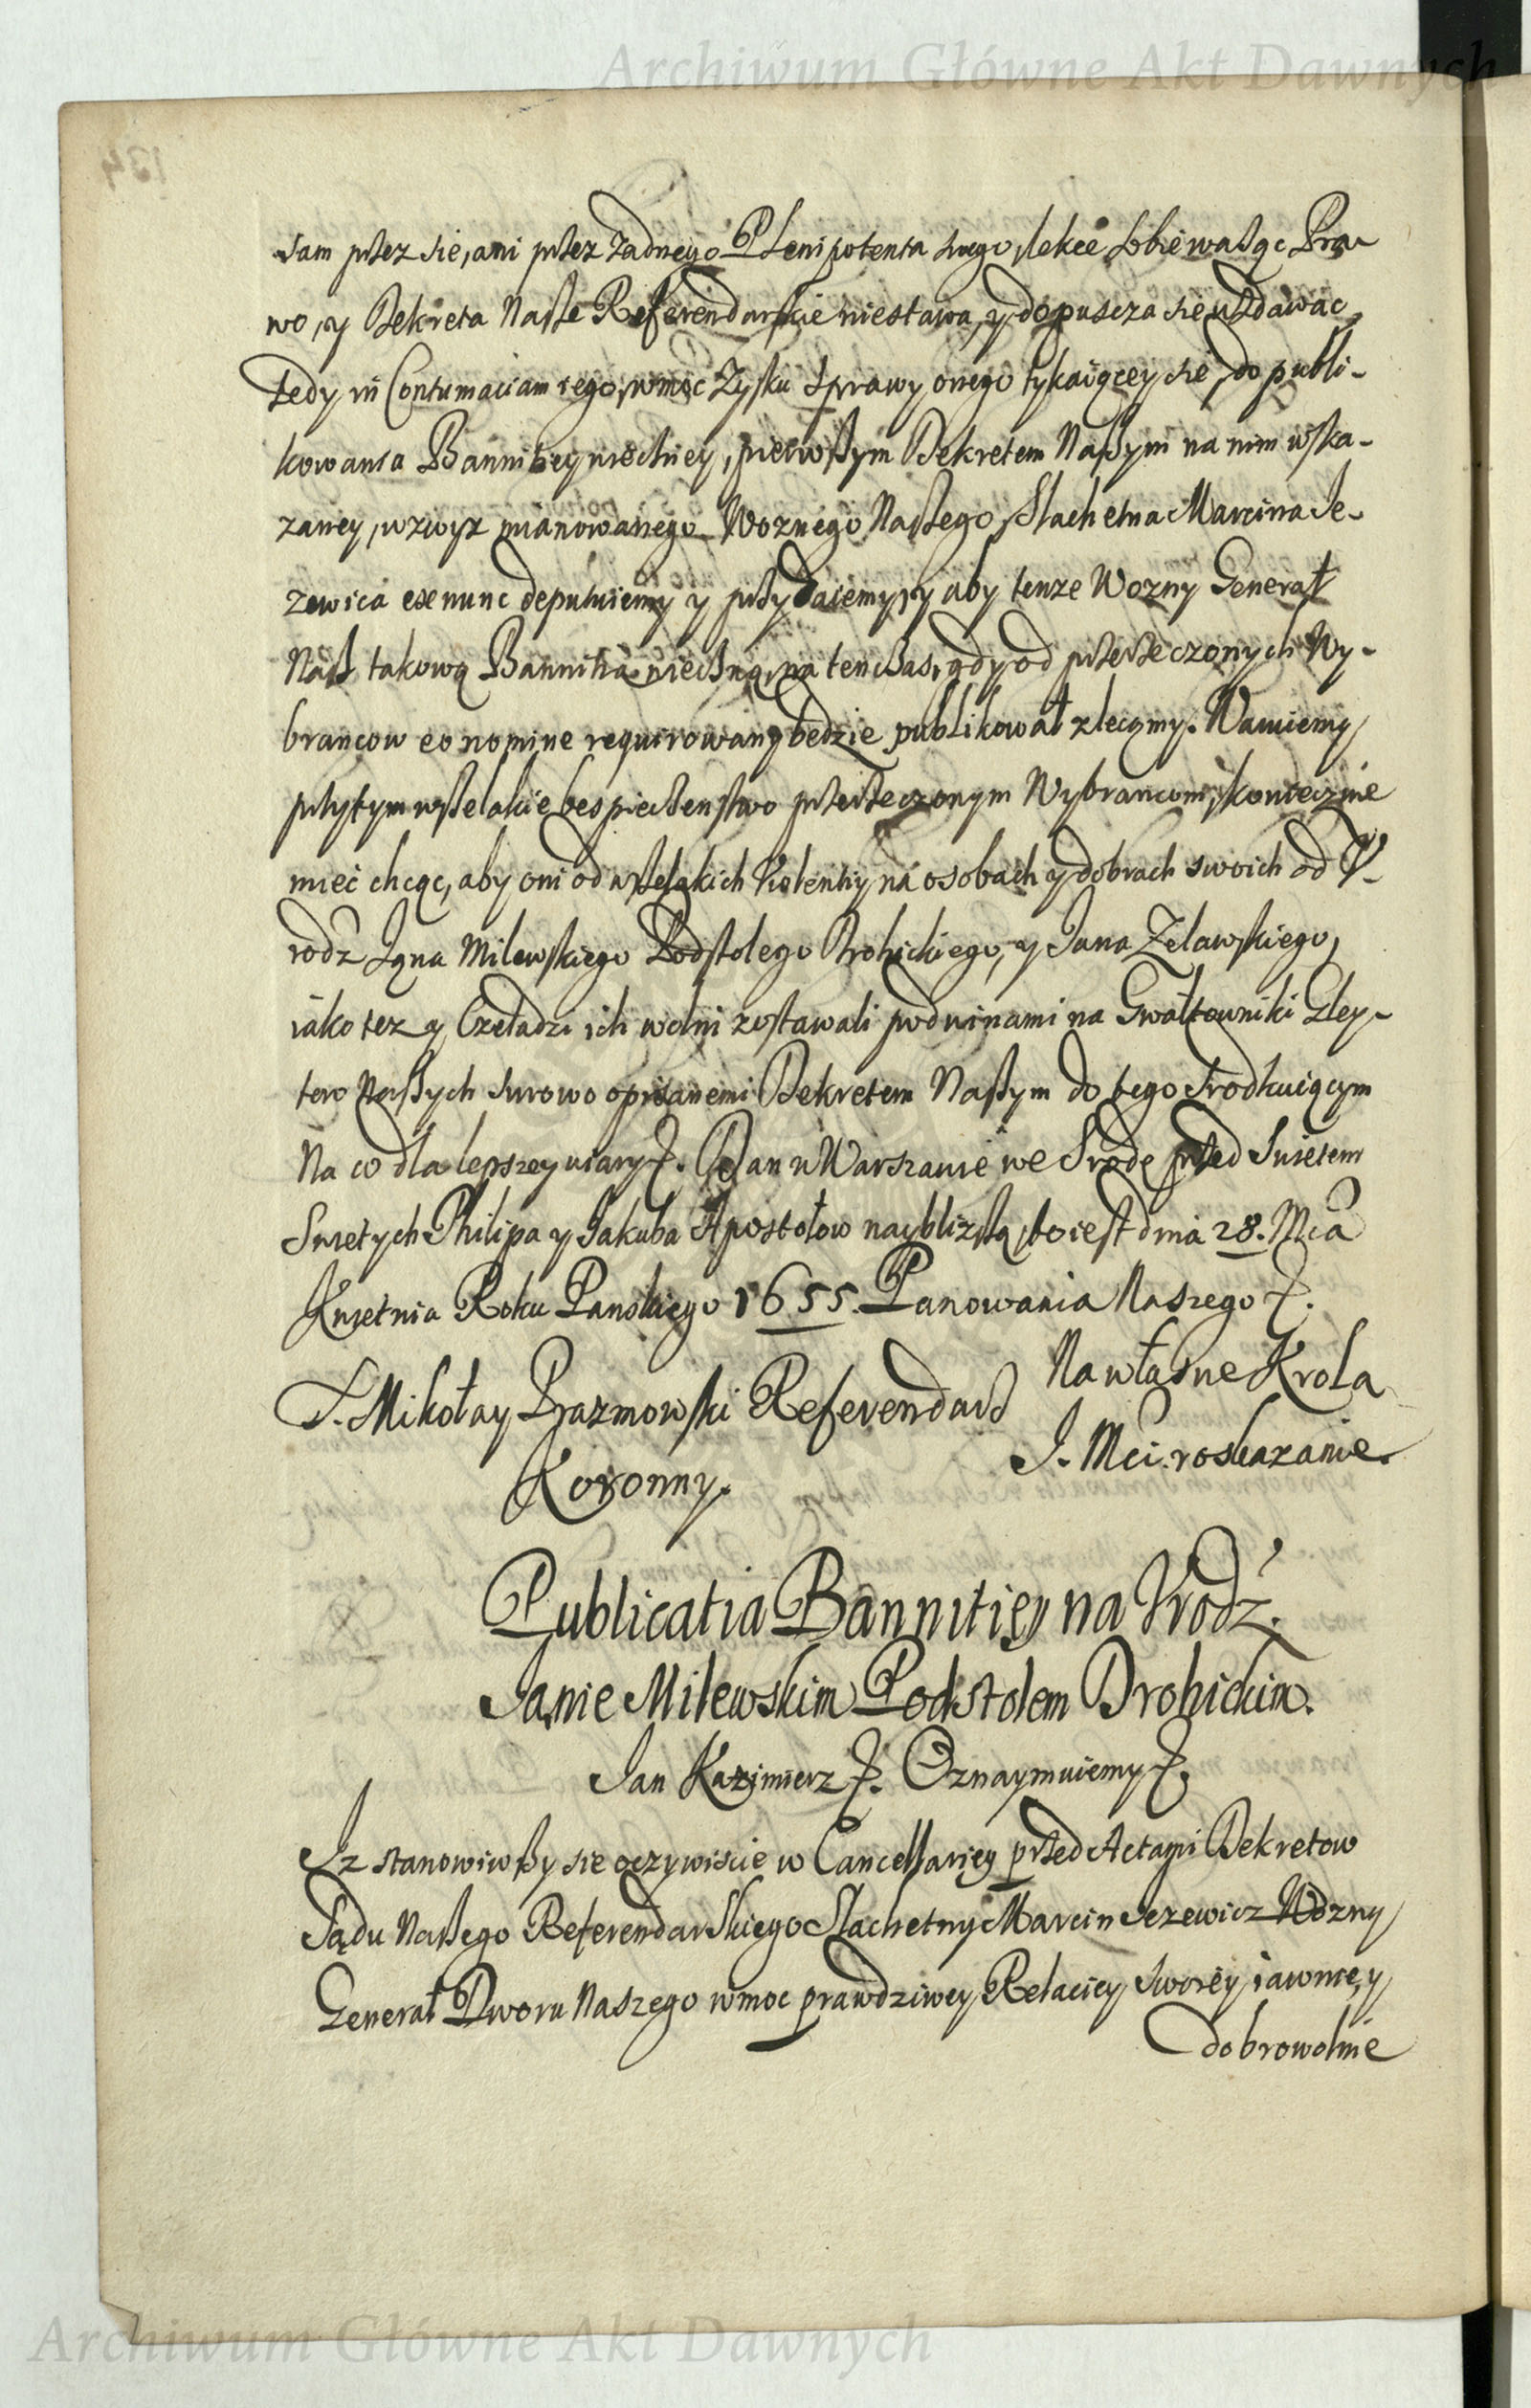 Archiwum Główne Akt Dawnych
134
sam przez sie, ani przez zadnego Plenipotenta swego, lekce sobie ważąc Pra-
wo, y Dekreta Nasze Referendarskie niestawa, y dopuscza sie wzdawac,
tedy in Contumaciam iego, wmoc Zysku Sprawy onego tykaiącey sie, do publi-
kowania Bannitiey wieczney, pierwszym Dekretem Naszym na nim wska-
zaney, wzwyz mianowanego Woznego Naszego, Slachetna Marcina Je-
zewica ex nunc deputuiemy y przydaiemy, y aby tenze Wozny Generał
Nasz takową Bannitią wieczną, na tenczas, gdy od przerzeczonych Wy-
brancow eo nomine requirowany będzie publikował zlecamy. Waruiemy
przytym wszelakie bespieczenstwo przerzeczonym Wybrancom, koniecznie
mieć chcąc, aby oni od wszelakich Violentiy na osobach y dobrach swoich od V-
rodz Jana Milewskiego Podstolego Drohickiego, y Jana Zelawskiego,
iako tez y Czeladzi ich wolni zostawali pod winami na Gwałtowniki Gley-
tow Naszych surowo opisanemi Dekretem Naszym do tego srodkuiącym
Na co dla lepszey wiary etc. Dan w Warszawie we Srodę przed Swietem
Swietych Philipa y Jakuba Apostołow naybliższą, to iest dnia 28. Mca
Kwietnia Roku Panskiego 1655. Panowania Naszego etc.
Na własne Krola
J. Mci. roskazanie.
X. Mikołay Prazmowski Referendarz
Koronny.
Publicatia Bannitiey na Vrodz.
Janie Milewskim Podstolem Drohickim.
Jan Kazimierz etc. Oznaymuiemy etc.
Iz stanowiwszy sie oczywiscie w Cancellariey przed Actami Dekretow
Sądu Naszego Referendarskiego Slachetny Marcin Jezewicz Wozny
Generał Dworu Naszego wmoc prawdziwey Relaciey swoiey iawnie, y
dobrowolnie
Archiwum Główne Akt Dawnych